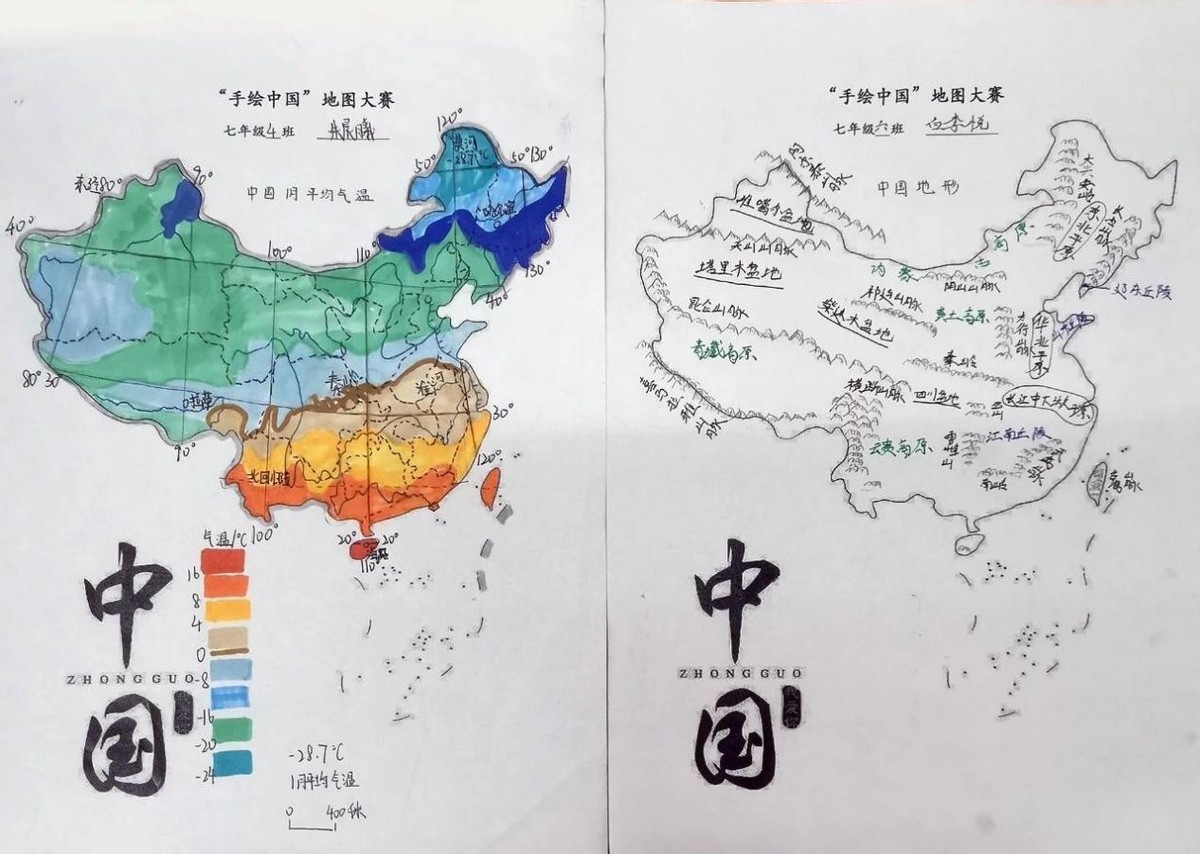 “手绘中国”地图大赛
七年级4班
中国1月平均气温
120°
漠河
-28.7℃
50°
50°
130°
东经80°
90°
40°
哈尔滨
100°
110°
130°
40°
80°
30°
秦岭
淮河
拉萨
90°
30°
120°
北回归线
100°
20°
20°
110°
气温/℃
16
8
4
0
-8
-16
-20
-24
中
ZHONG GUO
国
-28.7℃
1月平均气温
0 400千米
“手绘中国”地图大赛
七年级六班 白季悦
中国地形
阿尔泰山脉
大兴安岭
长白山脉
东北平原
准噶尔盆地
天山山脉
塔里木盆地
内蒙古高原
阴山山脉
辽东丘陵
祁连山脉
昆仑山脉
柴达木盆地
黄土高原
太行山脉
华北平原
青藏高原
秦岭
喜马拉雅山脉
横断山脉
四川盆地
巫山
长江中下游平原
云贵高原
雪峰山
江南丘陵
南岭
中
ZHONG GUO
国
我爱你